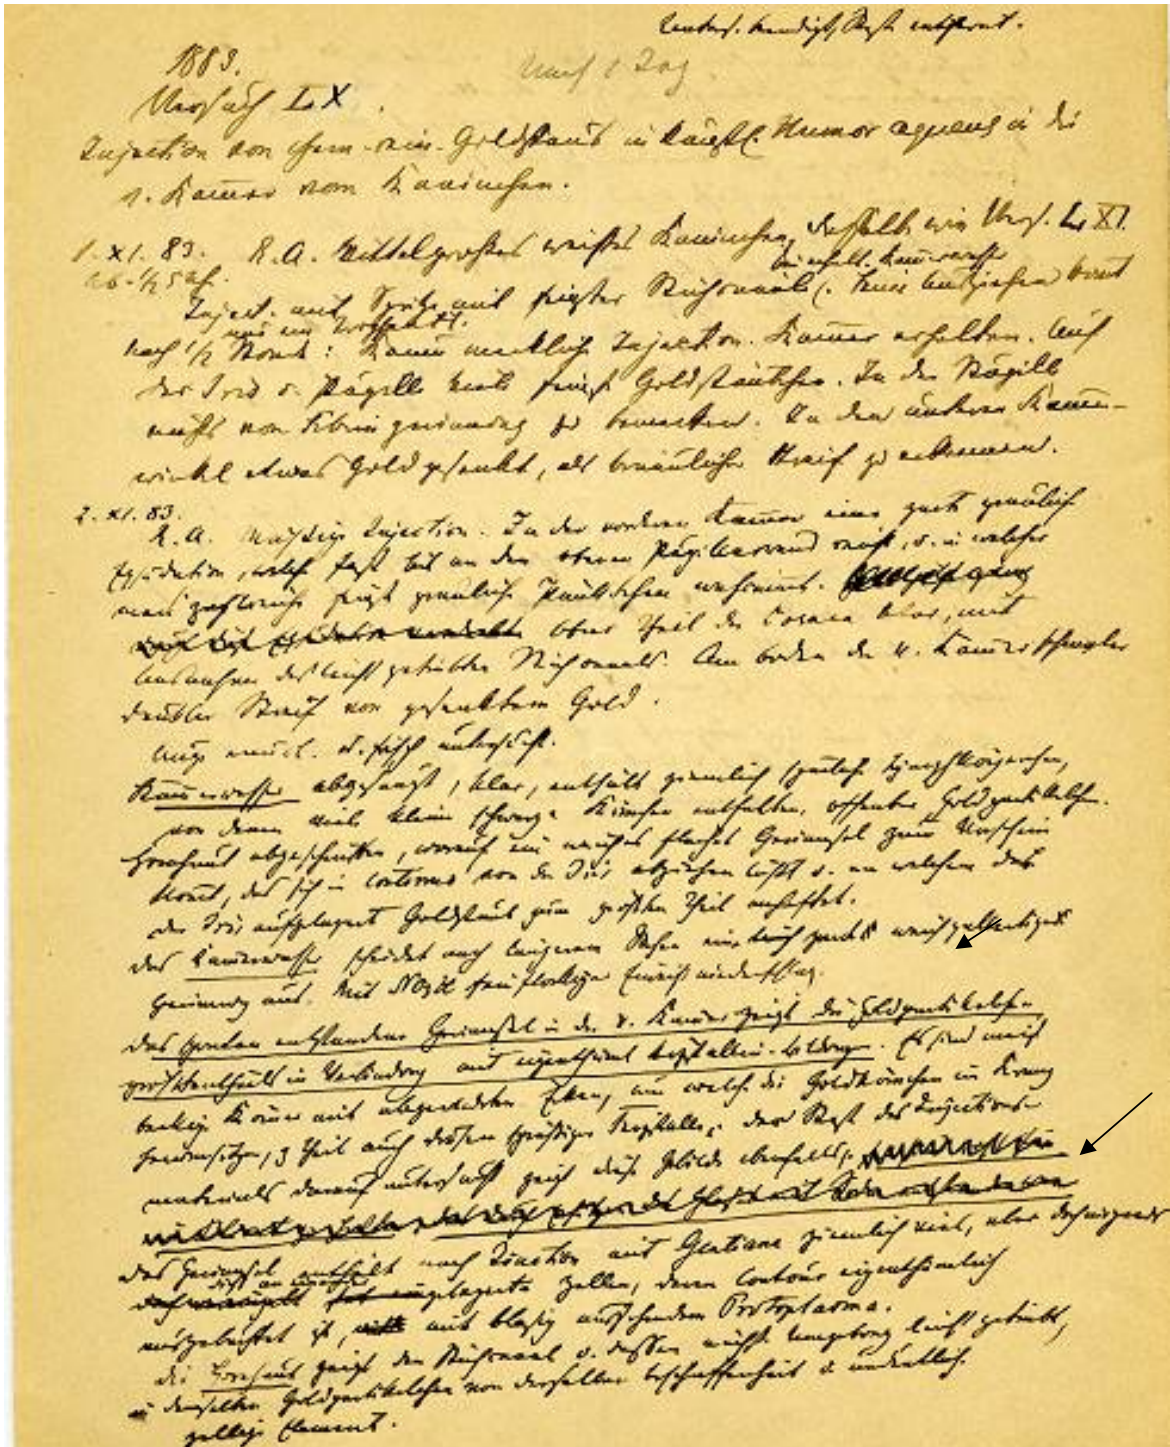 1883.
Nach 1 Tag
Versuch LX.
Injection von chem. rein. Goldstaub in künstl. Humor aqueus in die
v. Kam̅er vom Kaninchen.
1. XI. 83. R.A. Mittelgroßes weißes Kaninchen, dasselbe wie Vers. LXI.
Inject. mit Spritze mit
nach 1/2 Stunde: Kaum merkliche Injection. Kam̅er erhalten. Auf
der Iris u. Pupille viele feinste Goldstäubchen. In der Pupille
nichts von Fibringerinnung zu bemerken. In dem unteren Kam̅er-
winkel etwas Gold gesenkt, als bräunlicher Streif zu erkennen.
2. XI. 83.
R.A. Mäßige Injection. In der vorderen Kam̅er eine zarte grauliche
Exsudation, welche fast bis an den oberen Pupillarrand reicht, u. in welcher
man zahlreiche feinste grauliche Pünktchen wahrnimmt.
Oberer Theil der Cornea klar, mit
Ausnahme des leicht getrübten Stichcanals. Am Boden der v. Kam̅er schmaler
dunkler Streif von gesenktem Gold.
Auge enucl. u. frisch untersucht.
Kam̅erwasser abgesaugt, klar, enthält ziemlich spärliche Lymphkörperchen,
von denen viele kleine schwarze Körnchen enthalten, offenbar Goldpartikelchen.
Hornhaut abgeschnitten, worauf ein weiches flaches Gerinnsel zum Vorschein
kom̅t, das sich in continuo von der Iris abziehen läßt u. an welchem das
der Iris aufgelagerte Goldstaub zum größten Theil anhaftet.
Das Kam̅erwasser scheidet nach längerem Stehen eine
Gerinnung aus. Mit feinflockiger Eiweißniederschlag.
Das spontan entstandene Gerinnsel in der v. Kam̅er zeigt die Goldpartikelchen
größtentheils in Verbindung mit eigenthüml. krystallin. Bildungen. Es sind meist
Körner mit abgerundeten Ecken, um welche die Goldkörnchen im Kranz
herumsitzen, z. Theil auch drusenförmige Krystalle. Der Rest des Injections-
materials darauf untersucht zeigt diese Gebilde ebenfalls,
Das Gerinnsel enthält nach Tinction mit Gentiana ziemlich viel, aber
eingelagerte Zellen, deren Contour eigenthümlich
ausgebuchtet ist, mit blasig aussehendem Protoplasma.
Die Hornhaut zeigt den Stichcanal u. dessen nächste Umgebung leicht getrübt,
in denselben Goldpartikelchen von derselben Beschaffenheit u. undeutlich
zellige Elemente.